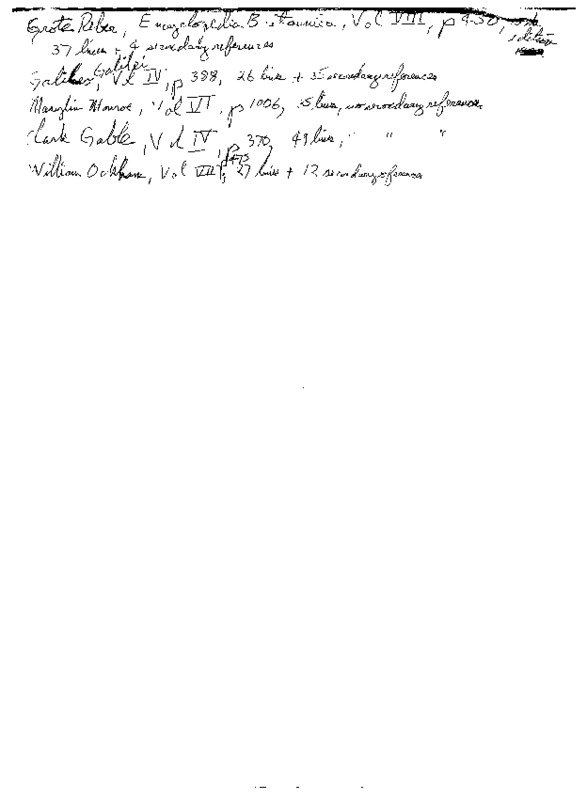 Grote Reber, Encyclopedia Britannica, Vol VIII, p 450,
edition
37 lines + 4 secondary references
Galilei
Galileo, Vol IV, p 388, 26 lines + 35 secondary references
Marylin Monroe, Vol VI, p 1006, 5 lines, no secondary references
Clark Gable, Vol IV, p 370, 49 lines, " " "
William Ockham, Vol VII, p 475, 27 lines + 12 secondary references